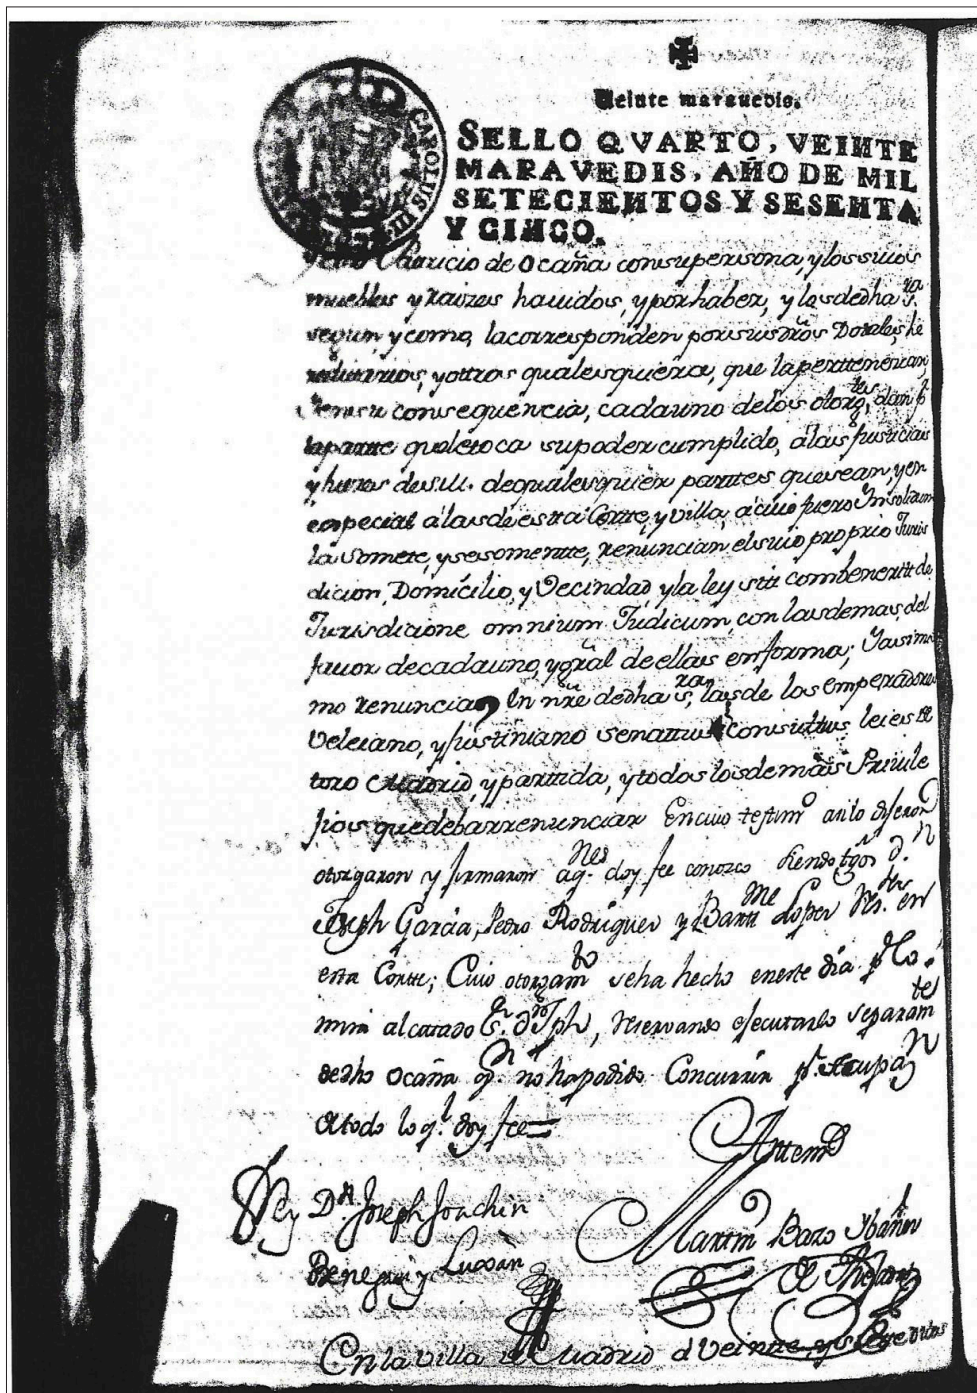 Veinte maravedis.
SELLO QVARTO, VEINTE
MARAVEDIS, AÑO DE MIL
SETECIENTOS Y SESENTA
Y CINCO.
CAROLUS III
Mauricio de Ocaña con su persona y los suios
muebles y raizes hauidos, y por haber, y los de dha s.ra
segun, y como, la corresponden por sus dr̃os Dotales, he
reditarios, y ottros qualesquiera, que la perttenezcan,
consequencia, cada uno de los otorg.tes, dan p.r
la partte que le toca su poder cumplido, á las Justicias
y Juezes de S.M. de qualesquier parttes que sean, y en
especial á las de estta Cortte, y Villa, á cuio fuero Insolidum
la Somete, y se somette, renuncian el suio proprio Juris
dicion, Domicilio, y Vecindad y la ley sitt combeneritt de
Jurisdicione omnium Judicum, con las demas, del
fauor de cada uno, y gr̃al de ellas en forma; Y asimis
mo renuncia, En nr̃e de dha s.ra, las de los emperadores
Veleiano, y Justiniano senattus Consulttus, leies de
toro Madrid, y parttida, y todos los demás Priuile
jios que deba rrenunciar En cuio testim.o asi lo dijeron
otorgaron y firmaron aq.nes doy fee conozco siendo tgõs d.n
Joseph Garcia, Pedro Rodriguez y Bart.me Lopez Rs.tes en
esta Corte; Cuio otorgam.to se ha hecho en este dia p.r lo
mira al catado S.r d.n Jph, reservando ejecutarlo separam.te
dedho Ocaña q.n no ha podido Concurrir p.r ocupaz.n
A todo lo q.l doy fee
Antemi
D.n Joseph Joachin
Benegasi y Luxan
Martin Bazo Ybañez
de Thejada
En la Villa de Madrid á Veintte, y